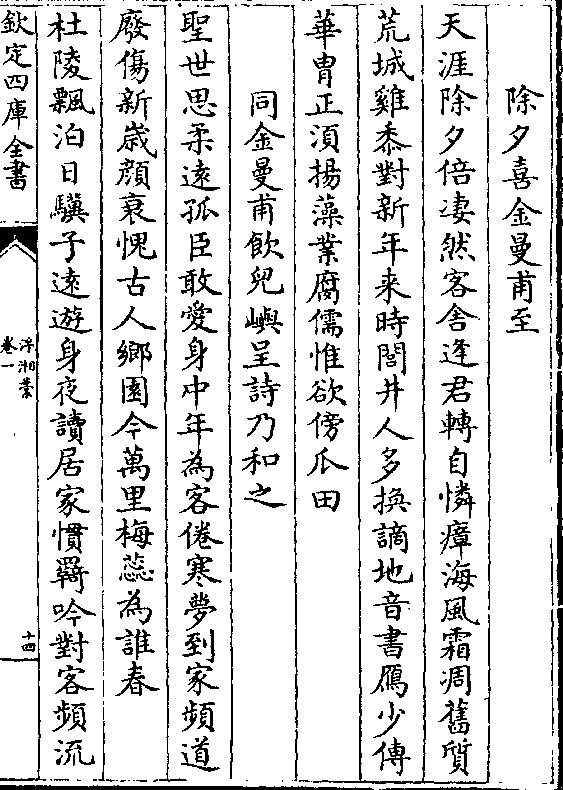 除夕喜金曼甫至
天涯除夕倍淒然客舎逢君轉自憐瘴海風霜凋舊質
荒城雞黍對新年来時閭井人多換謫地音書鴈少傳
華胄正湏揚藻業腐儒惟欲傍瓜田
同金曼甫飲兒嶼呈詩乃和之
聖世思柔逺孤臣敢愛身中年為客倦寒夢到家頻道
廢傷新歳顔衰愧古人鄉園今萬里梅蕊為誰春
杜陵飄泊日驥子逺遊身夜讀居家慣羇吟對客頻流
欽定四庫全書
浮湘藁
卷一
十四